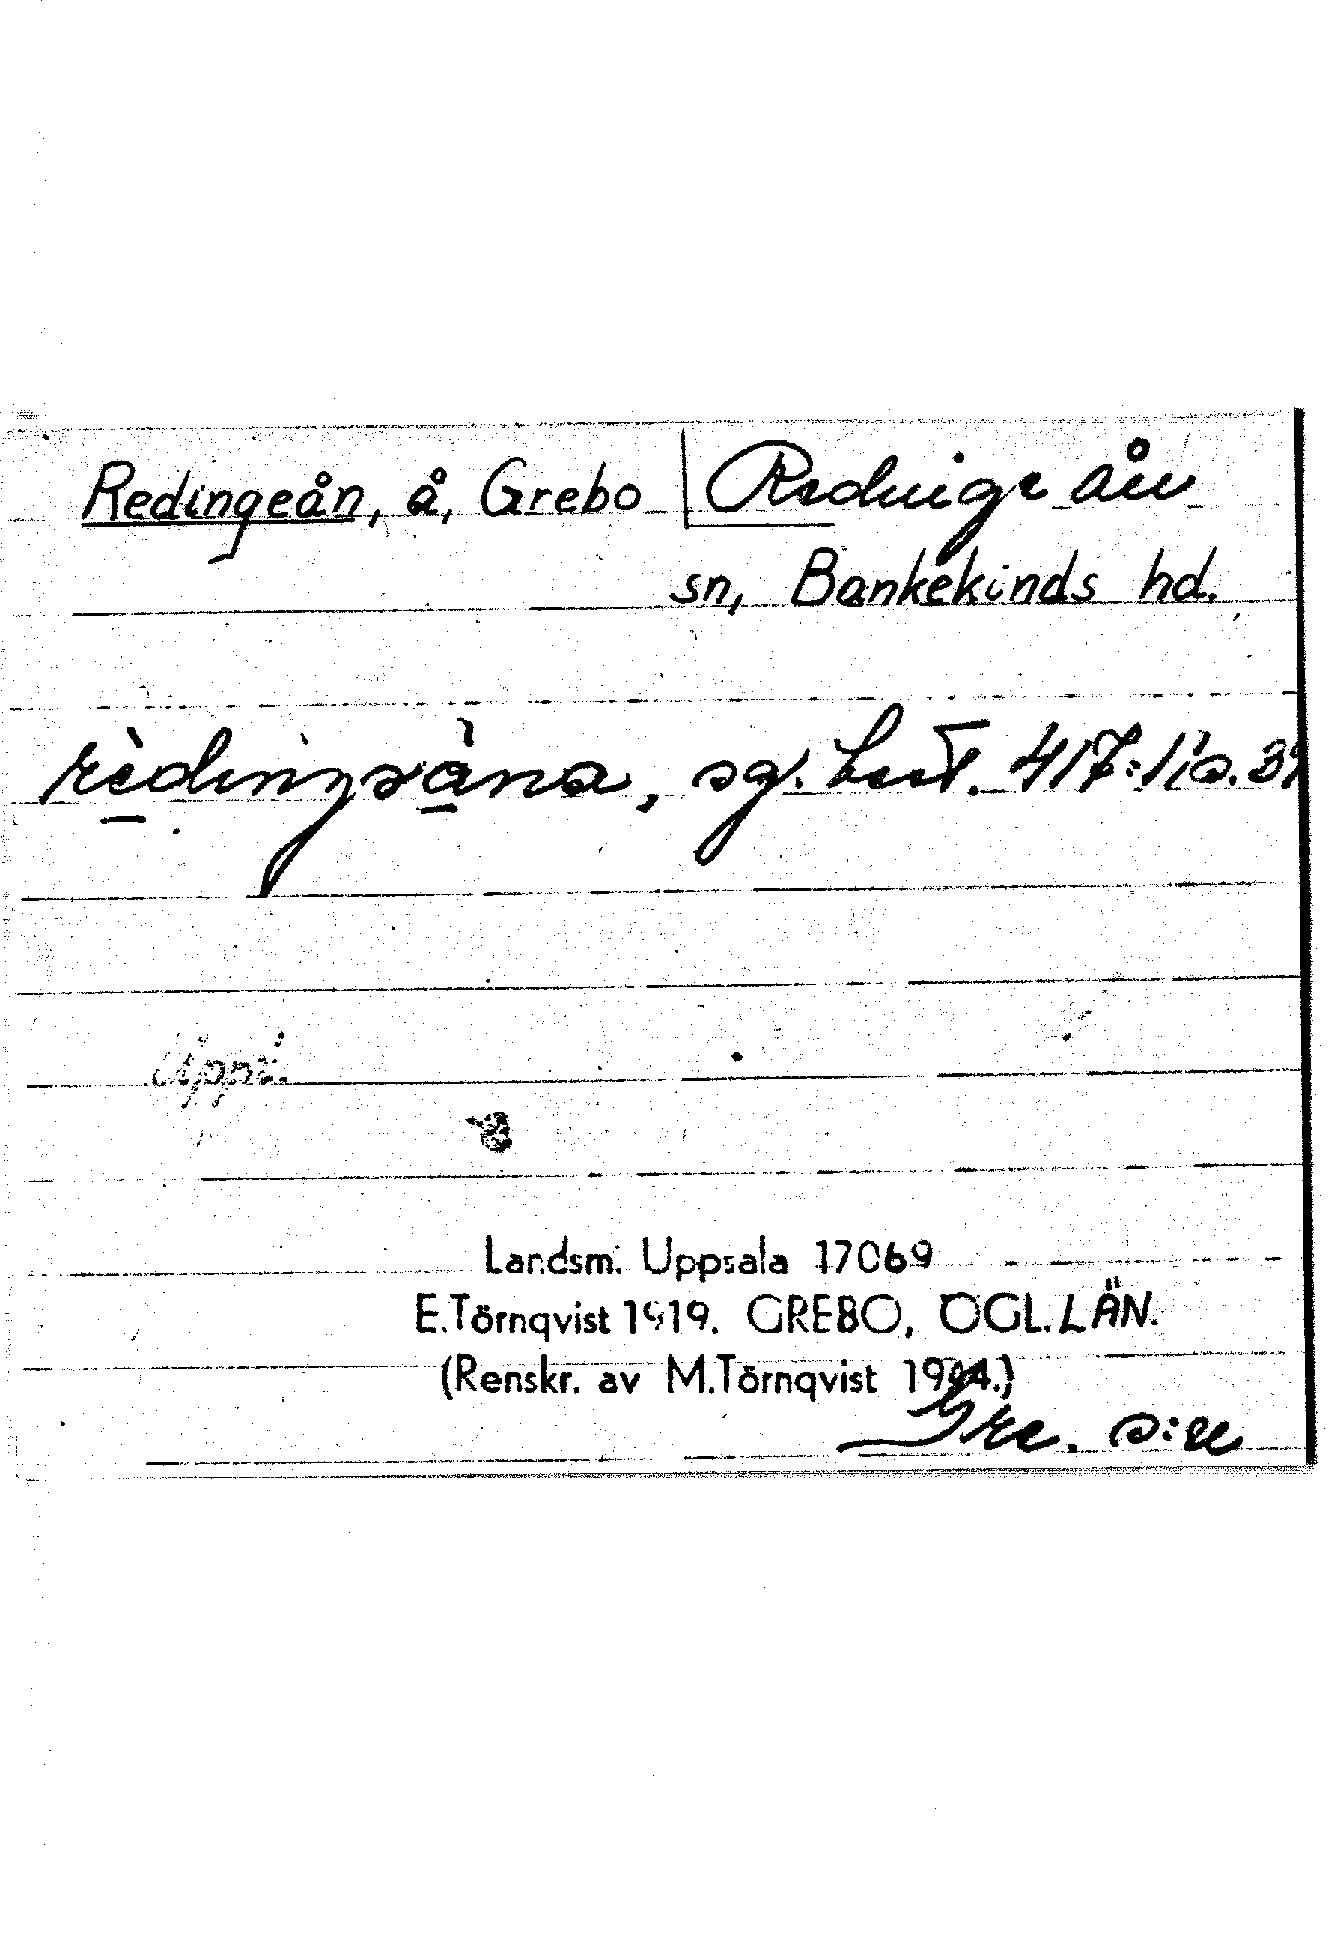 Redingeån, å, Grebo Redingeån
sn, Bankekinds hd.
sg. best. 417:1, s. 39
Uppt.
Landsm. Uppsala 17069
E.Törnqvist 1919. GREBO, ÖGL.LÄN.
(Renskr. av M.Törnqvist 1944.)